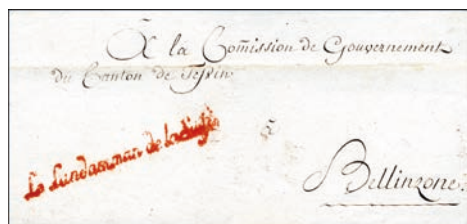 À la Com̃ission de Gouvernement
du Canton de Tessin
à
Le Landamman de la Suisse
Bellinzone.